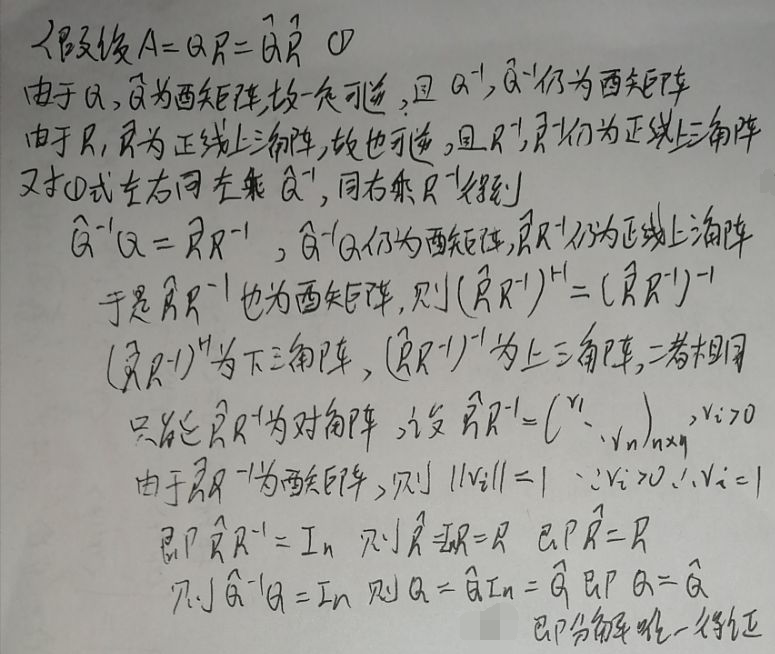 假设 A=QR=Q̂R̂ ①
由于Q,Q̂为酉矩阵,故一定可逆,且Q⁻¹,Q̂⁻¹仍为酉矩阵
由于R,R̂为正线上三角阵,故也可逆,且R⁻¹,R̂⁻¹仍为正线上三角阵
又对①式左右同左乘Q̂⁻¹,同右乘R⁻¹得到
Q̂⁻¹Q=R̂R⁻¹,Q̂⁻¹Q仍为酉矩阵,R̂R⁻¹仍为正线上三角阵
于是R̂R⁻¹也为酉矩阵,则(R̂R⁻¹)ᴴ=(R̂R⁻¹)⁻¹
(R̂R⁻¹)ᴴ为下三角阵,(R̂R⁻¹)⁻¹为上三角阵,二者相同
只能R̂R⁻¹为对角阵,设R̂R⁻¹=(r₁⋱rₙ)ₙₓₙ,rᵢ>0
由于R̂R⁻¹为酉矩阵,则||rᵢ||=1 ∵rᵢ>0∴rᵢ=1
即R̂R⁻¹=Iₙ 则R̂=IₙR=R 即R̂=R
则Q̂⁻¹Q=Iₙ 则Q=Q̂Iₙ=Q̂ 即Q=Q̂
即分解唯一得证